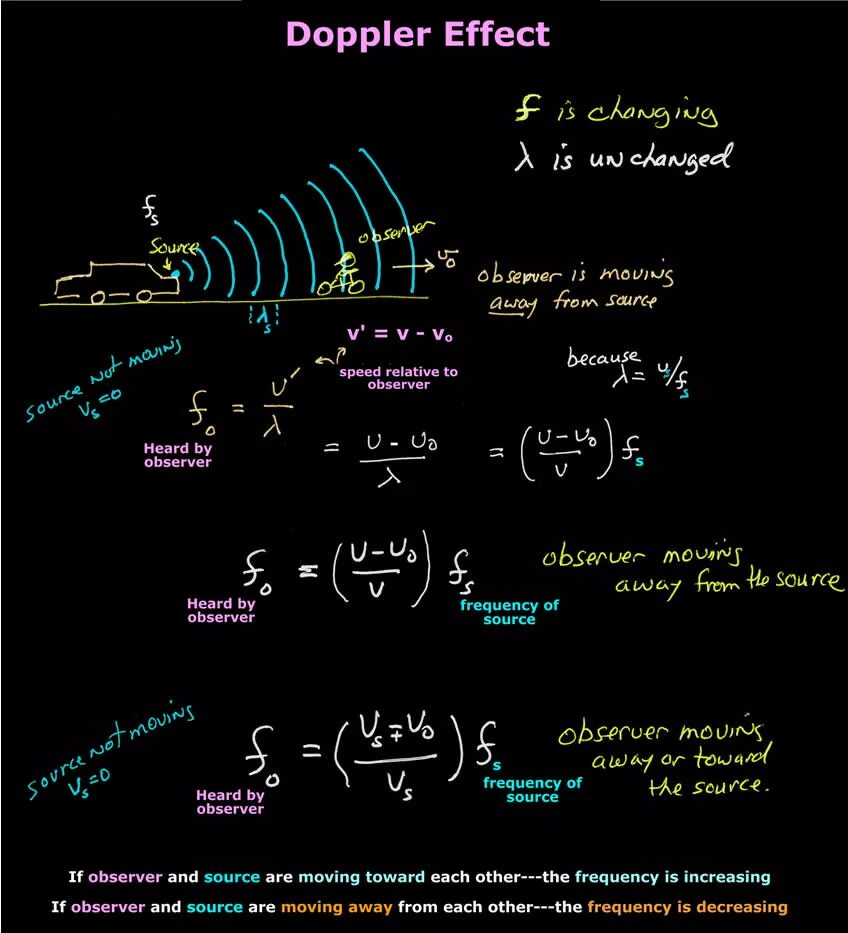 Doppler Effect
f is changing
λ is unchanged
fₛ
Source
observer
v₀
observer is moving
away from source
λₛ
v' = v - vₒ
speed relative to
observer
source not moving
vₛ=0
fₒ = v'/λ
Heard by
observer
because
λ = vₛ/fₛ
= (v - v₀)/λ = ((v - v₀)/v) fₛ
fₒ = ((v - v₀)/v) fₛ
Heard by
observer
frequency of
source
observer moving
away from the source
source not moving
vₛ=0
fₒ = ((vₛ ∓ v₀)/vₛ) fₛ
Heard by
observer
frequency of
source
observer moving
away or toward
the source.
If observer and source are moving toward each other---the frequency is increasing
If observer and source are moving away from each other---the frequency is decreasing